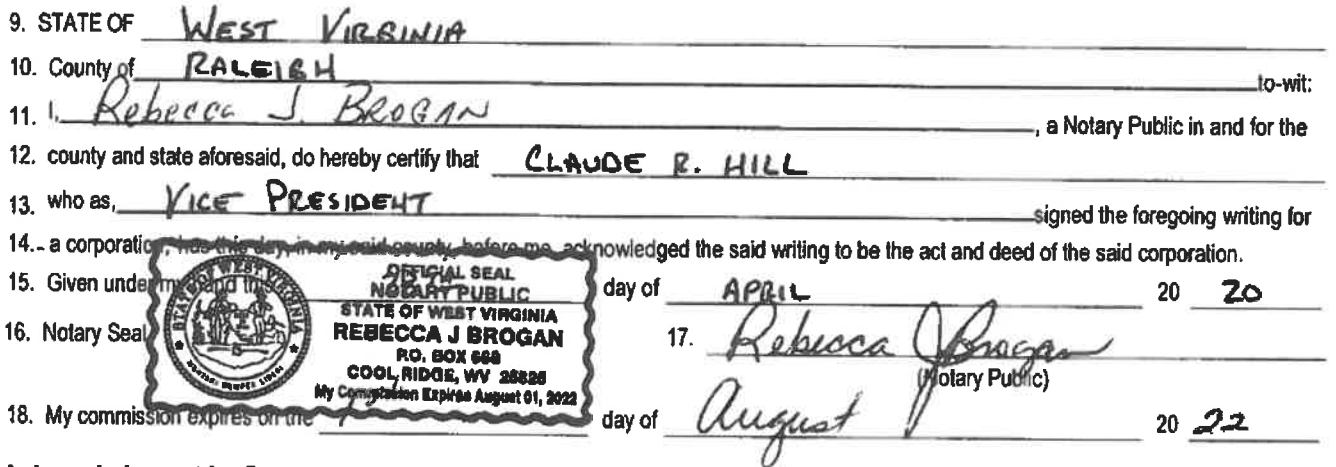 9. STATE OF WEST VIRGINIA
10. County of RALEIGH to-wit:
11. I, Rebecca J. BROGAN , a Notary Public in and for the
12. county and state aforesaid, do hereby certify that CLAUDE R. HILL
13. who as, VICE PRESIDENT signed the foregoing writing for
14. a corporation, has this day, in my said county, before me, acknowledged the said writing to be the act and deed of the said corporation.
15. Given under my hand this day of APRIL 20 20
STATE OF WEST VIRGINIA
MONTANI SEMPER LIBERI
OFFICIAL SEAL
NOTARY PUBLIC
STATE OF WEST VIRGINIA
REBECCA J BROGAN
P.O. BOX 668
COOL RIDGE, WV 25825
My Commission Expires August 01, 2022
16. Notary Seal 17. Rebecca J Brogan
(Notary Public)
18. My commission expires on the day of August 20 22